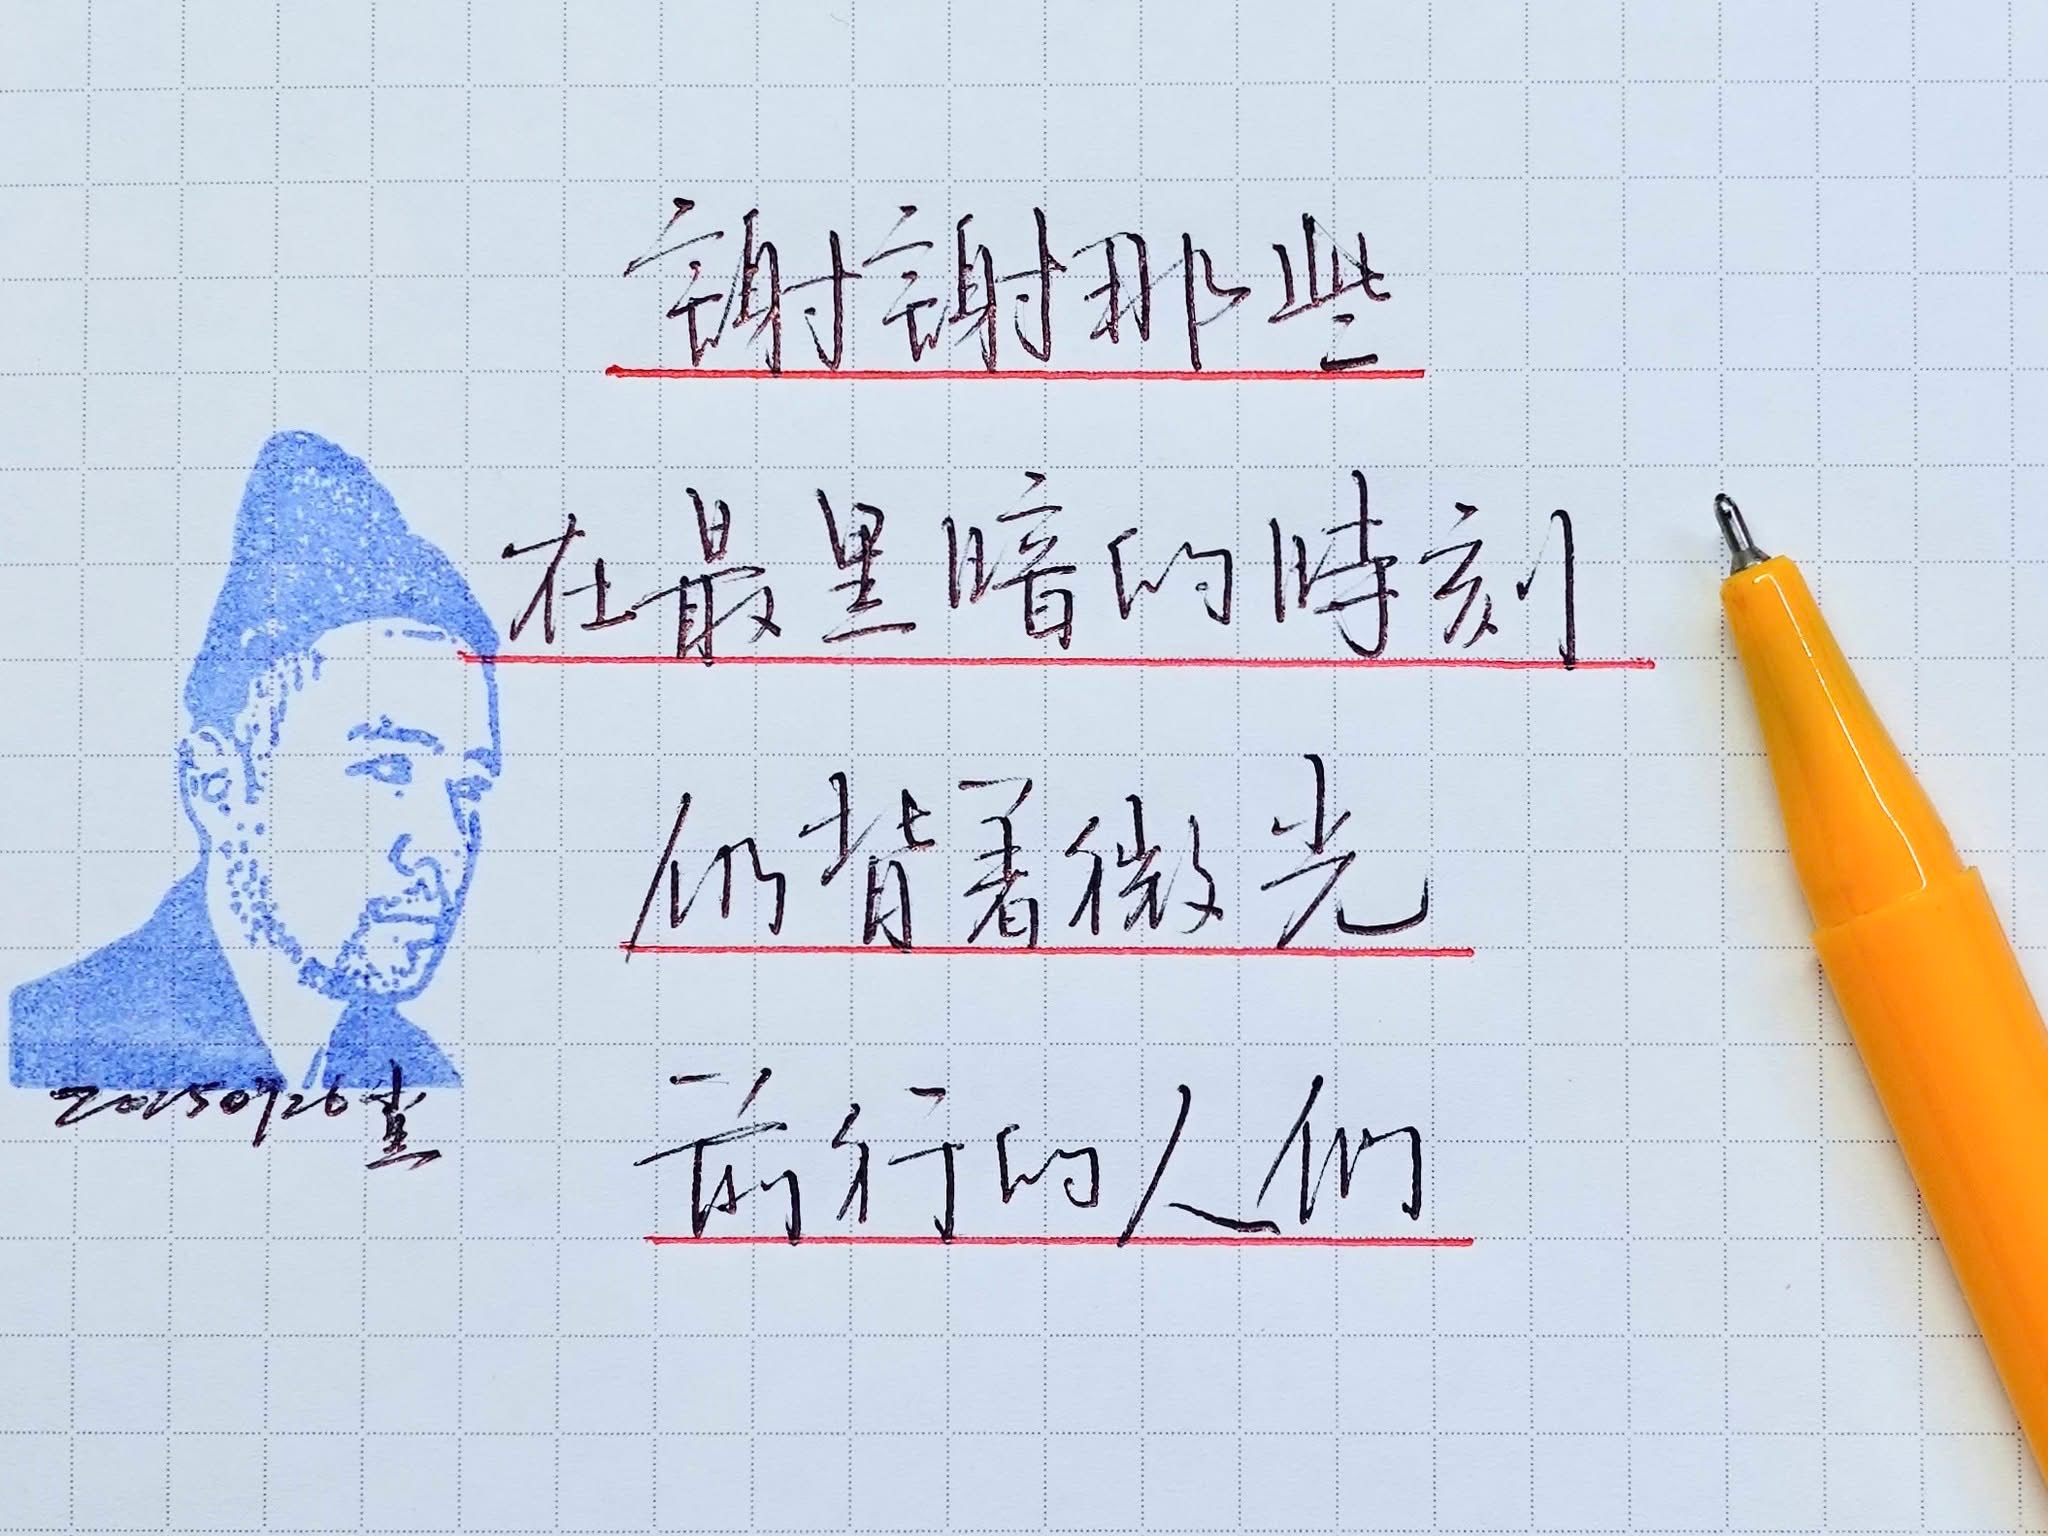 謝謝那些
在最黑暗的時刻
仍背着微光
前行的人們
20250726